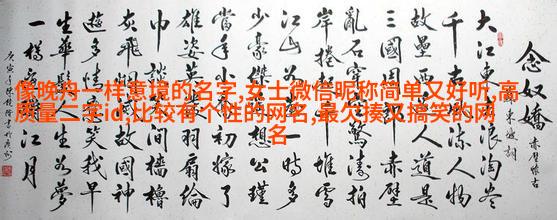 念奴嬌
赤壁懷古
大江東去浪淘尽
千古風流人物
故壘西邊人道是
三國周郎赤壁
亂石穿空驚濤拍
岸捲起千堆雪
江山如畫一時多
少豪傑遙想公瑾
當年小喬初嫁了
雄姿英發羽扇綸
巾談笑間檣櫓
灰飛煙滅故國神
遊多情應笑我早
生華髮人生如夢
一樽還酹江月
像晚舟一样意境的名字,女士微信昵称简单又好听,高
质量二字id,比较有个性的网名,最欠揍又搞笑的网
名